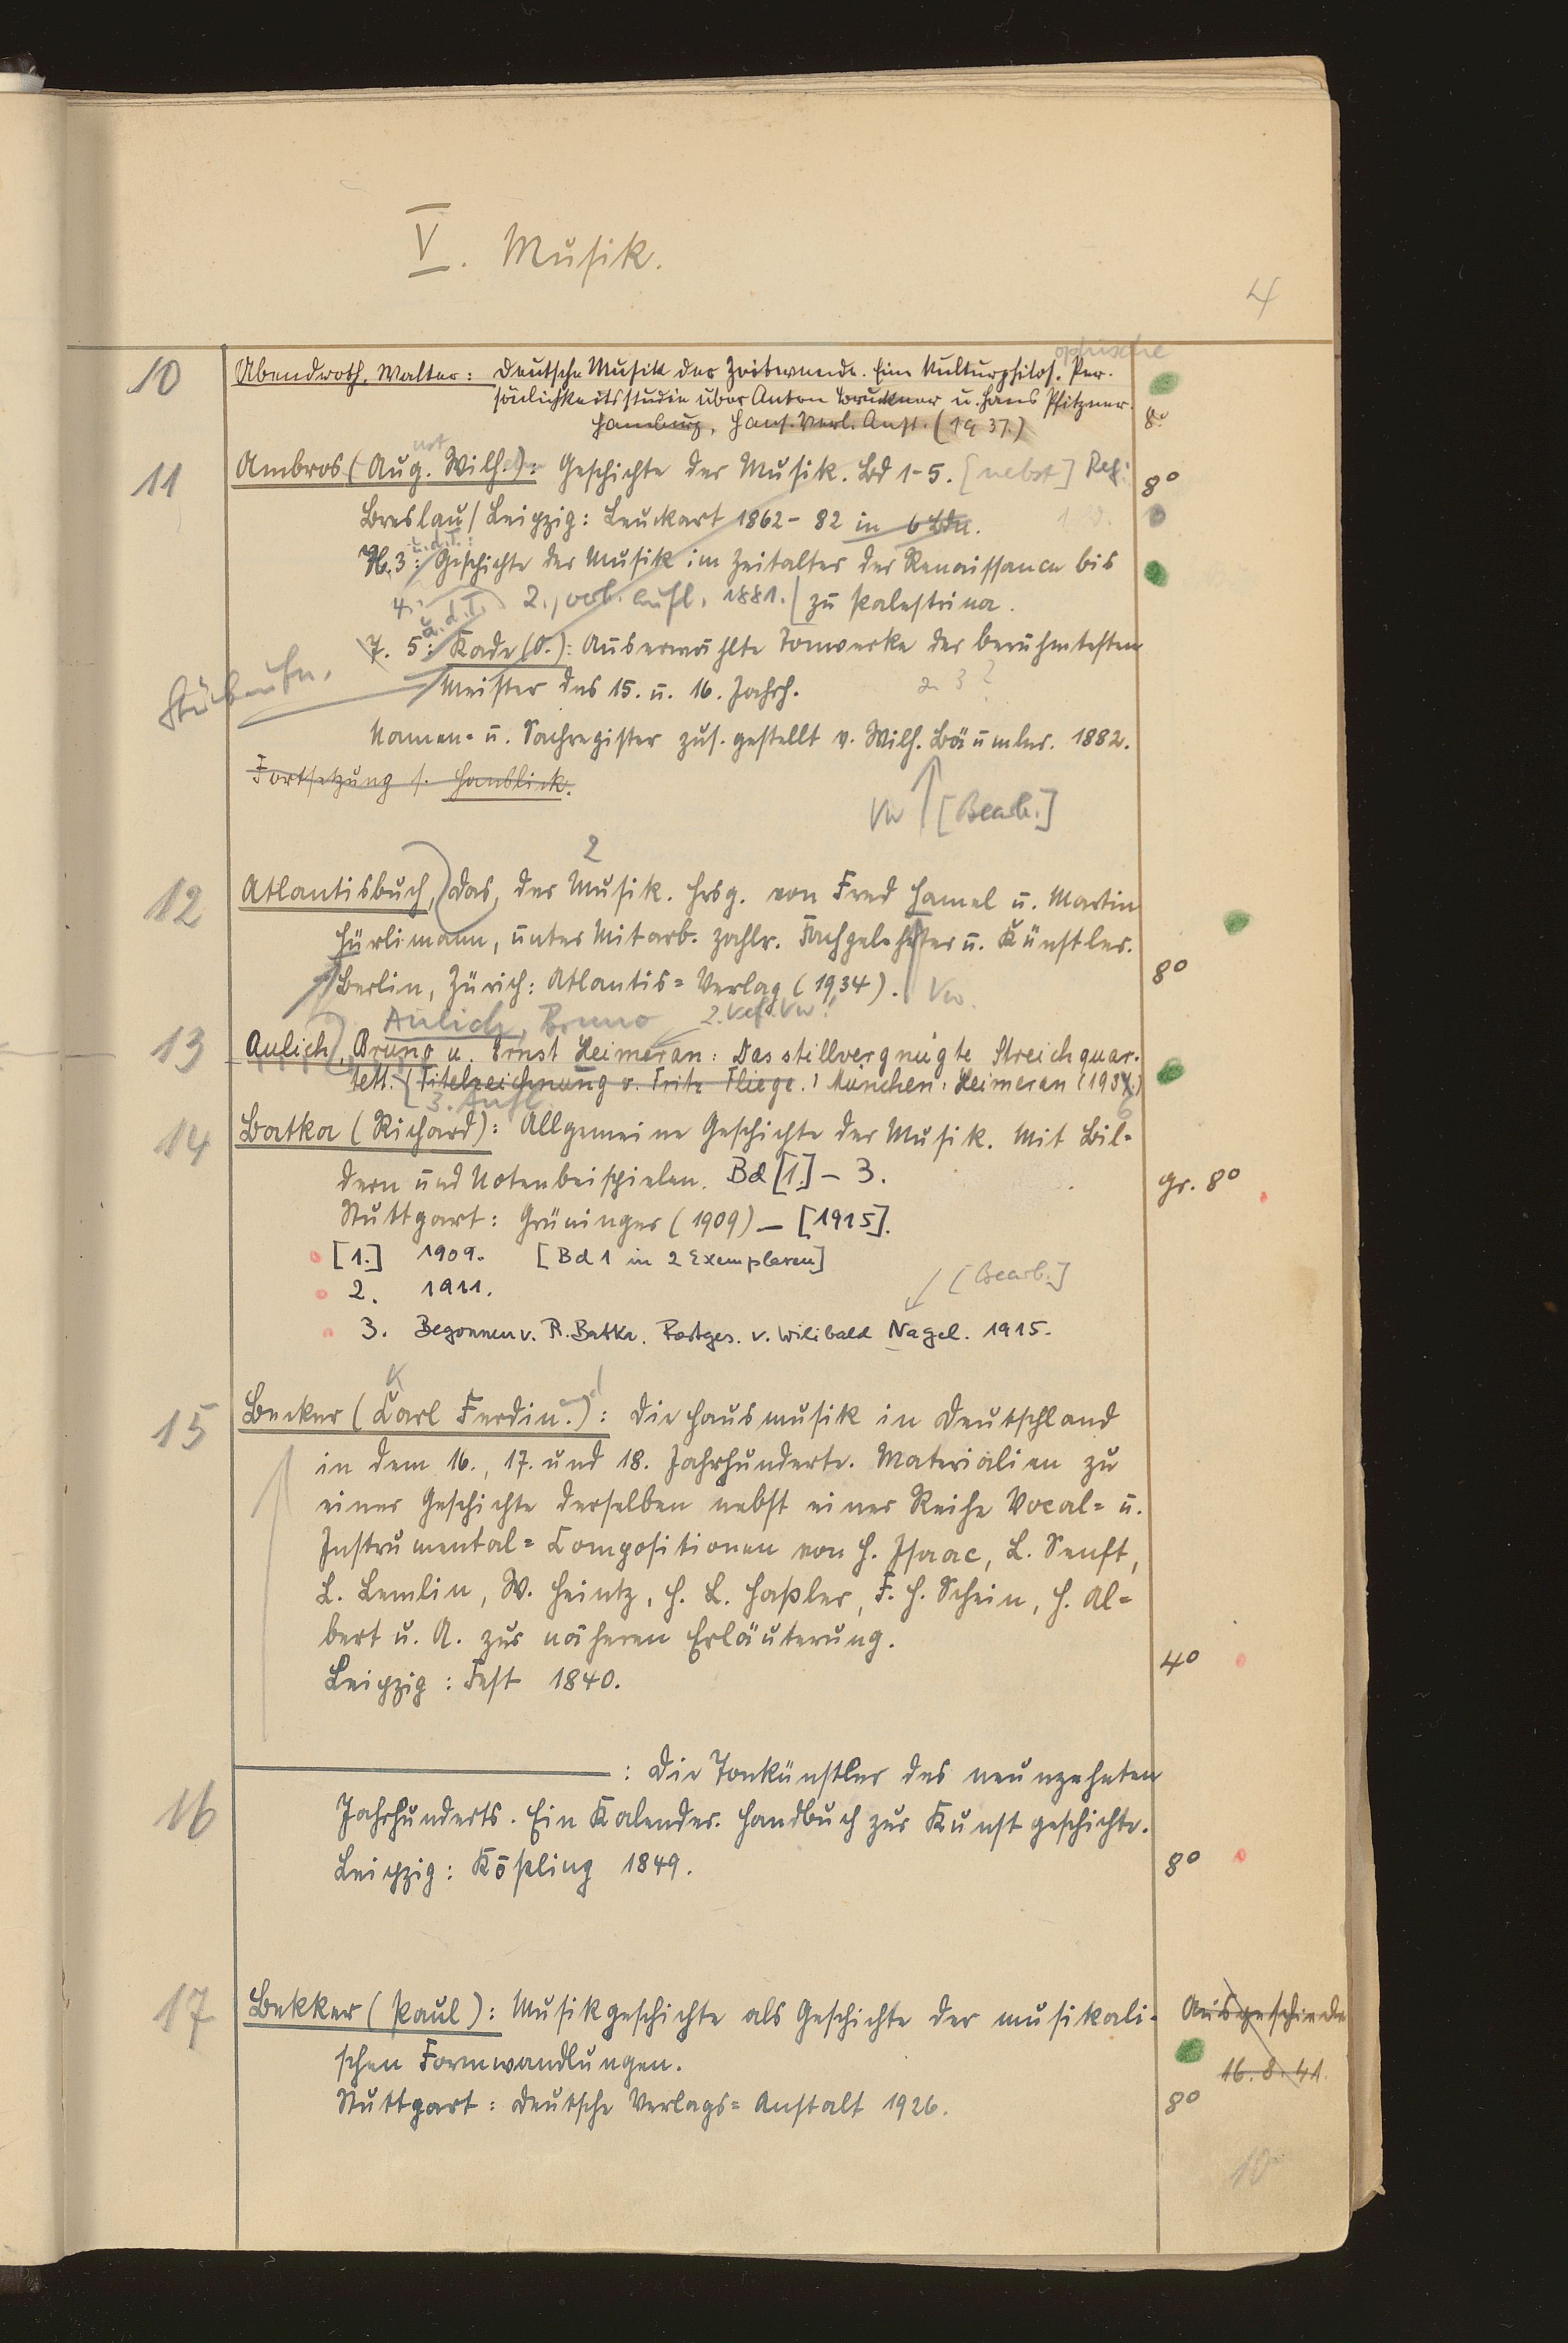 V. Musik.
4
ophische
10 Abendroth, Walter: Deutsche Musik der Zeitwende. Eine kulturphilos. Per-
sönlichkeitsstudie über Anton Bruckner u. Hans Pfitzner.
Hamburg, Hans. Verl. Anst. (1937.) 8°
ust
11 Ambros (Aug. Wilh.): Geschichte der Musik. Bd 1-5. [nebst] Reg: 8°
Breslau/Leipzig: Leuckart 1862-82 in 6 Bdn. 1 Bd.
u.d.T.:
3: Geschichte der Musik im Zeitalter der Renaissance bis
4. 2., verb. Aufl. 1881. zu Palestrina.
u.d.T.
5: Kade (O.): Auserwählte Tonwerke der berühmtesten
Meister des 15. u. 16. Jahrh. 3?
Namen- u. Sachregister zus. gestellt v. Wilh. Bäumker. 1882.
Fortsetzung s. Hanslick.
Vw [Bearb.]
2
12 Atlantisbuch, Das, der Musik. Hrsg. von Fred Hamel u. Martin
Hürlimann, unter Mitarb. zahlr. Fachgelehrter u. Künstler.
Berlin, Zürich: Atlantis-Verlag (1934). Vw. 8°
Aulich, Bruno 2. Verf. Vw!
13 Aulich, Bruno u. Ernst Heimeran: Das stillvergnügte Streichquar-
tett. (Titelzeichnung v. Fritz Fliege.) München: Heimeran (1937)
3. Aufl. 6
14 Batka (Richard): Allgemeine Geschichte der Musik. Mit Bil-
dern und Notenbeispielen. Bd [1.] - 3. gr. 8°
Stuttgart: Grüninger (1909) - [1915].
[1.] 1909. [Bd 1 in 2 Exemplaren]
2. 1911. [Bearb.]
3. Begonnen v. R. Batka. Fortges. v. Wilibald Nagel. 1915.
K
15 Becker (Carl Ferdin.): Die Hausmusik in Deutschland
in dem 16., 17. und 18. Jahrhunderte. Materialien zu
einer Geschichte derselben nebst einer Reihe Vocal- u.
Instrumental-Compositionen von H. Isaac, L. Senfl,
L. Lemlin, W. Heintz, H. L. Haßler, J. H. Schein, H. Al-
bert u. A. zur näheren Erläuterung. 4°
Leipzig: Fest 1840.
16 : Die Tonkünstler des neunzehnten
Jahrhunderts. Ein Kalender. Handbuch zur Kunstgeschichte.
Leipzig: Kößling 1849. 8°
17 Bekker (Paul): Musikgeschichte als Geschichte der musikali- Ausgeschieden
schen Formwandlungen. 16. 8. 41.
Stuttgart: Deutsche Verlags-Anstalt 1926. 8°
10